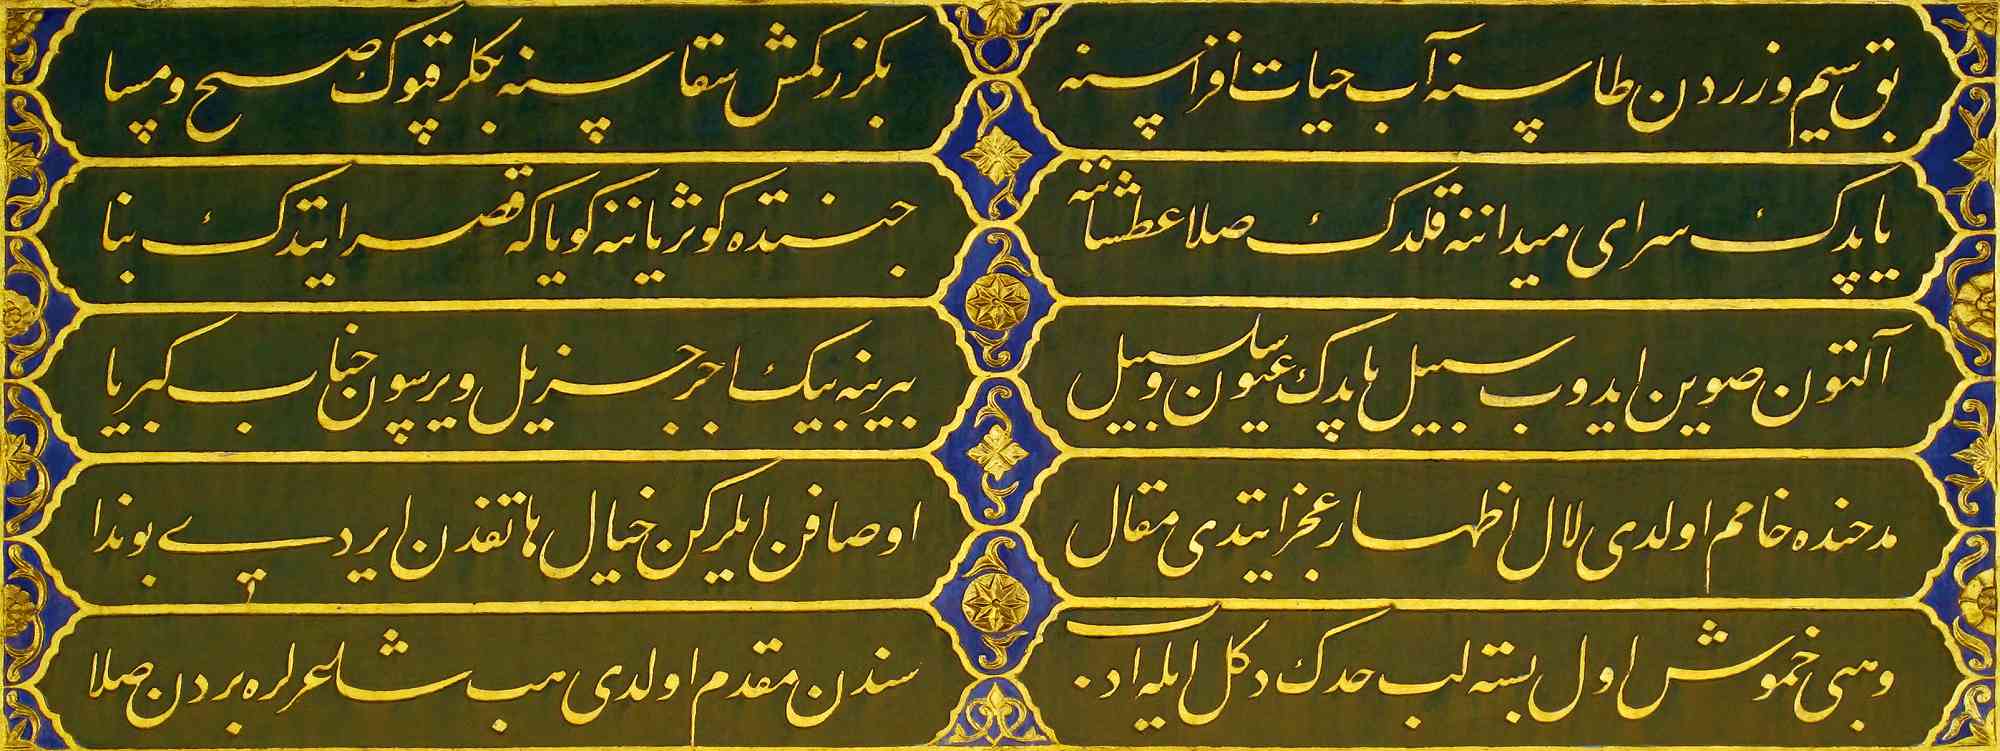 بق سیم و زردن طاسنه آب حیات افزاسنه
بکزر کمش سقاسنه بکلر قپوڭ صبح و مسا
یاپدڭ سرای میداننه قلدڭ صلا عطشاننه
جنتده کوثر یاننه کویا که قصر ایتدڭ بنا
آلتون صوین ایدوب سبیل یاپدڭ عیون و سلسبیل
بیرینه بیڭ اجر جزیل ویرسون جناب کبریا
مدحنده خامم اولدی لال اظهار عجز ایتدی مقال
اوصافن ایلرکن خیال هاتفدن ایردی بو ندا
وهبی خموش اول بسته لب حدڭ دکل ایله ادب
سندن مقدم اولدی هب شاعرلره بردن صلا